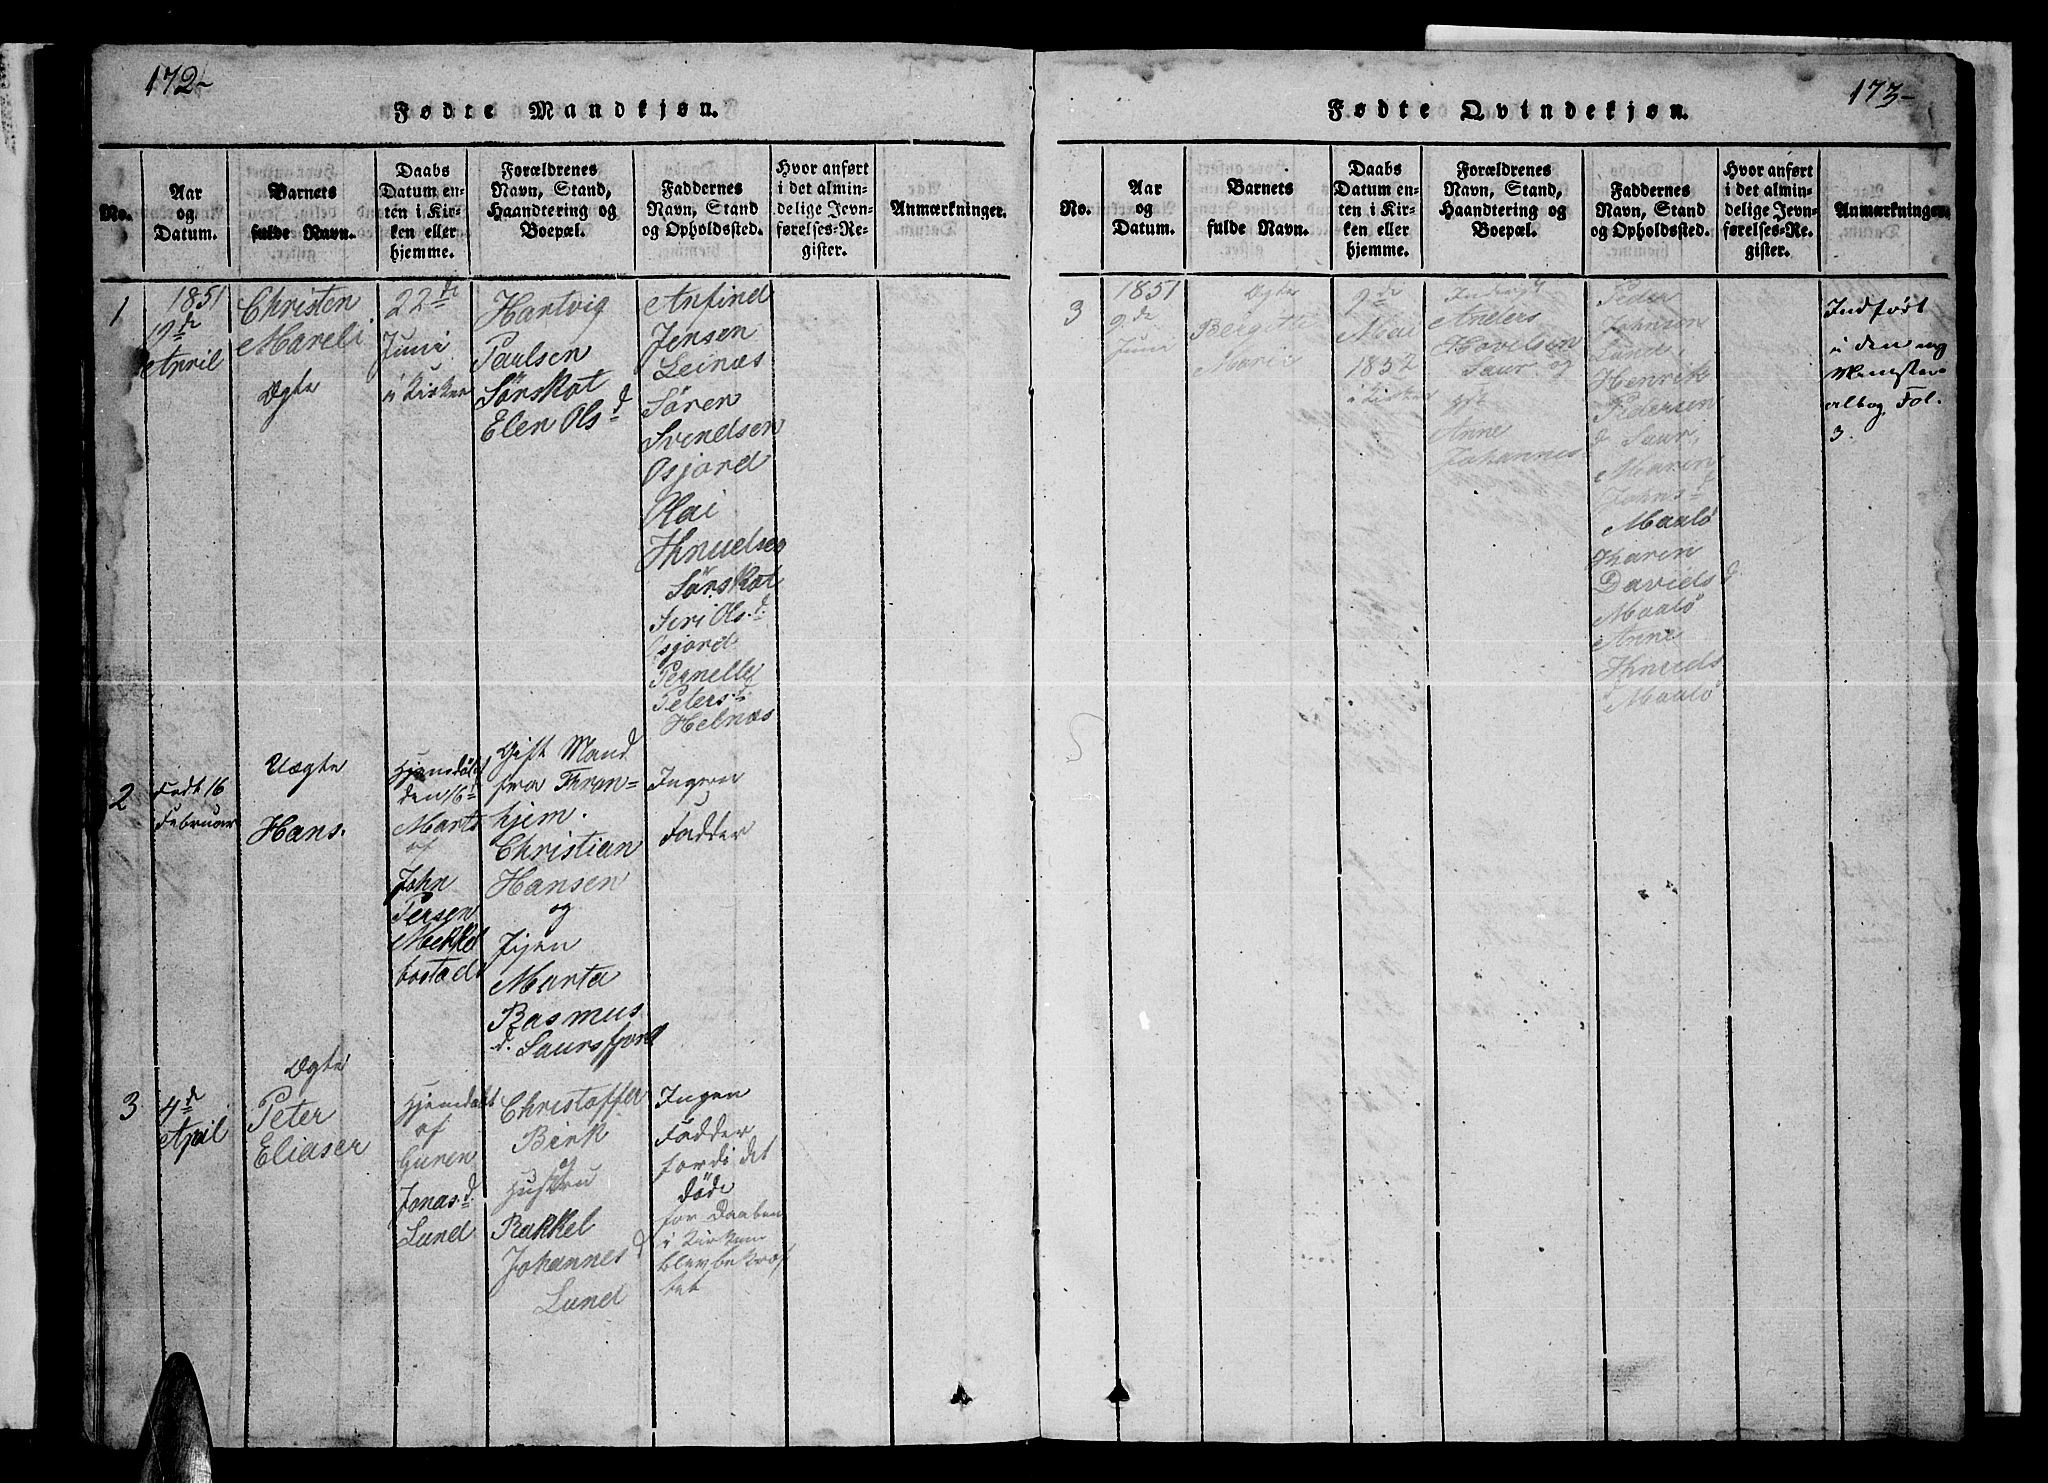 172-
Fødte Mandkjøn.
No.
Aar
og
Datum.
Barnets
fulde Navn.
Daabs
Datum en-
ten i Kir-
ken eller
hjemme.
Forældrenes
Navn, Stand,
Haandtering og
Boepæl.
Faddernes
Navn, Stand
og Opholdssted.
Hvor anført
i det almin-
delige Jevn-
førelses-Re-
gister.
Anmærkninger.
1
1851
19de
April
Christen
Mareli
Ægte
22de
Juni
i Kirken
Hartvig
Paulsen
Sörskat
Elen Olsd
Anfind
Jensen
Leinæs
Sören
Svendsen
Osjord
Olai
Knudsen
Sörskat
Siri Olsd.
Osjord
Pernelle
Petersd.
Helnæs
2
Født 16
Februar
Uægte
Hans.
Hjemdöbt
den 16d
Marts
af
John
Persen
Mekkel
bostad
Gift Mand
fra Thron-
hjem.
Christian
Hansen
og
Pigen
Marta
Rasmus
d. Saursfjord
Ingen
Fadder
3
4d
April
Ægte
Peter
Eliaser
Hjemdöbt
af
Guren
Jonasd.
Lund
Christoffer
Birk
og
Hustru
Rakkel
Johannesd
Lund
Ingen
Fadder
fordi det
döde
før Daaben
i Kirken
blev bekræf
tet
173-
Fødte Qvindekjøn.
No.
Aar
og
Datum.
Barnets
fulde Navn.
Daabs
Datum en-
ten i Kir-
ken eller
hjemme.
Forældrenes
Navn, Stand,
Haandtering og
Boepæl.
Faddernes
Navn, Stand
og Opholdssted.
Hvor anført
i det almin-
delige Jevn-
førelses-Re-
gister.
Anmærkninger.
3
1851
9de
Juni
Ægte
Bergitte
Marie
9de
Mai
1852
i Kirken
Anders
Havelsen
Saur og
Anne
Johannes
Peder
Johnsen
Lund,
Henrik
Pedersen
Saur,
Maren
Johnsd
Maalö
Karen
Davidsd
Maalö
Anne
Knuds
d Maalö
Indført
i den ny
Ministeri
albog Fol.
3.